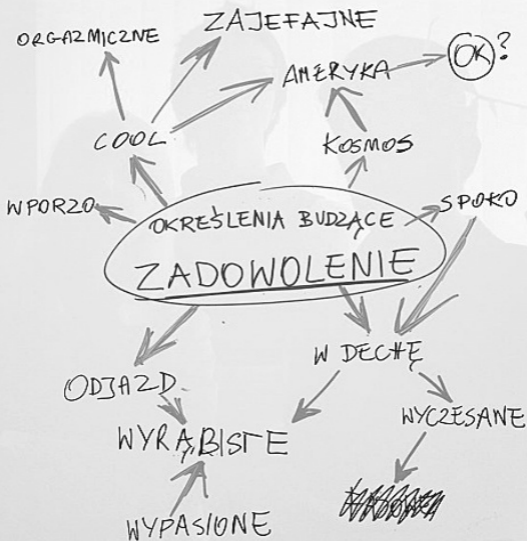 ORGAZMICZNE
ZAJEFAJNE
AMERYKA
OK?
COOL
KOSMOS
WPORZO
SPOKO
OKREŚLENIA BUDZĄCE
ZADOWOLENIE
W DECHĘ
ODJAZD
WYCZESANE
WYRĄBISTE
WYPASIONE